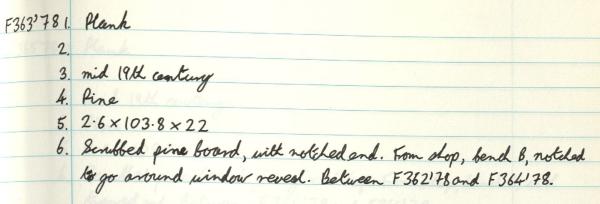 F363'78 1. Plank
2.
3. mid 19th century
4. Pine
5. 2.6 x 103.8 x 22
6. Scrubbed pine board, with notched end. From shop, bench B, notched
to go around window reveal. Between F362'78 and F364'78.